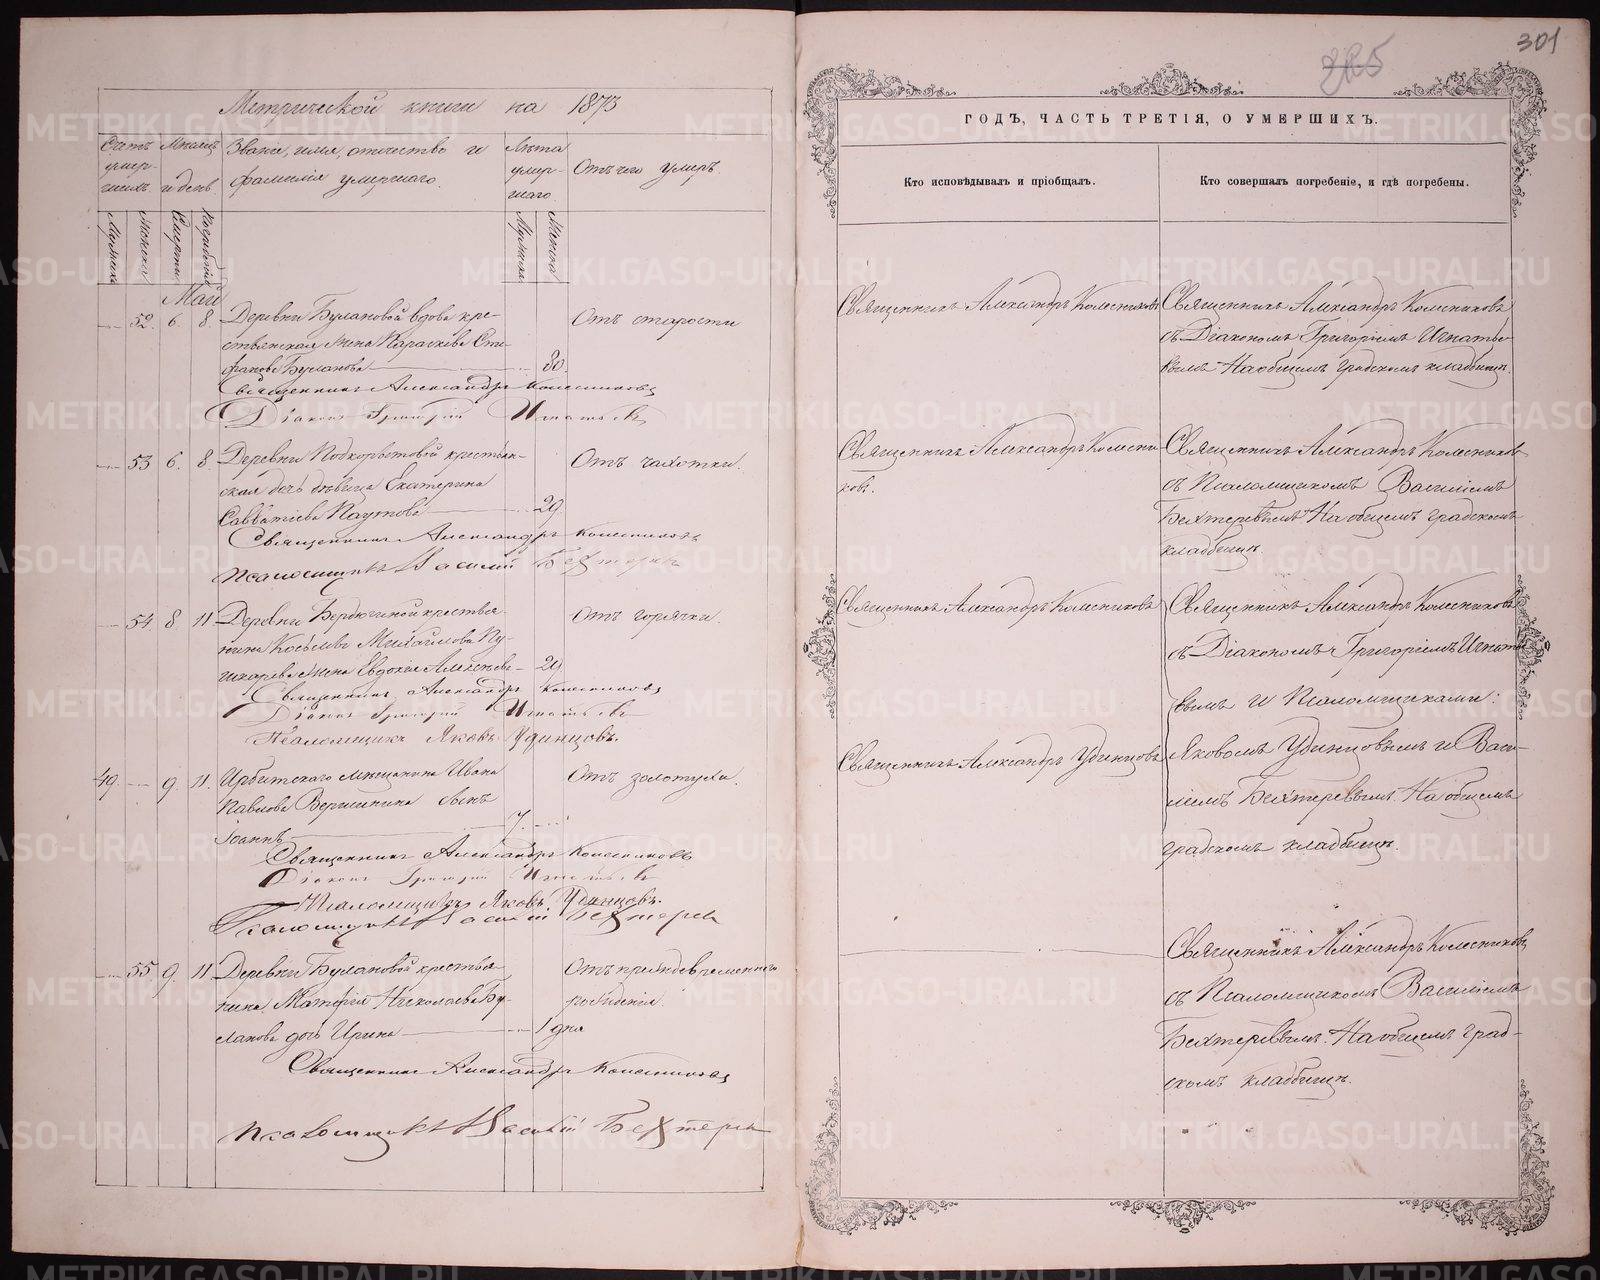 301
Метрической книги на 1873
ГОДЪ, ЧАСТЬ ТРЕТІЯ, О УМЕРШИХЪ.
Счетъ умер-шихъ.
Мѣсяцъ и день
Званіе, имя, отчество и фамилія умершаго.
Лѣта умер-шаго.
Отъ чего умеръ.
Кто исповѣдывалъ и пріобщалъ.
Кто совершалъ погребеніе, и гдѣ погребены.
Мужска
Женска
Смерти
Погребенія
Мужска
Женска
Май
52. 6. 8. Деревни Булановой вдова кре-
стьянская жена Параскева Сте-
фанова Буланова 80.
Отъ старости
Священникъ Александръ Колесниковъ
Діаконъ Григорій Игнатьевъ
Священникъ Александръ Колесниковъ
Священникъ Александръ Колесниковъ
съ Діакономъ Григоріемъ Игнатье-
вымъ На общемъ градскомъ кладбищѣ.
53 6. 8 Деревни Подкорытовой крестьян-
ская дочь дѣвица Екатерина
Савватіева Паутова 29
Отъ чахотки.
Священникъ Александръ Колесниковъ
Псаломщикъ Василій Бехтеревъ
Священникъ Александръ Колесни-
ковъ.
Священникъ Александръ Колесниковъ
съ Псаломщикомъ Василіемъ
Бехтеревымъ На общемъ градскомъ
кладбищѣ.
54 8 11 Деревни Бердюгиной крестья-
нина Косьмы Михайлова Пу-
шкарева жена Евдокія Алексѣева 29
Отъ горячки.
Священникъ Александръ Колесниковъ
Діаконъ Григорій Игнатьевъ
Псаломщикъ Яковъ Удинцовъ.
Священникъ Александръ Колесниковъ
Священникъ Александръ Колесниковъ
съ Діакономъ Григоріемъ Игнатье-
вымъ и Псаломщиками:
Яковомъ Удинцовымъ и Васи-
ліемъ Бехтеревымъ. На общемъ
градскомъ кладбищѣ.
49. 9. 11. Ирбитскаго мѣщанина Ивана
Павлова Вершинина сынъ
Іоаннъ 7.
Отъ золотухи.
Священникъ Александръ Колесниковъ
Діаконъ Григорій Игнатьевъ
Псаломщикъ Яковъ Удинцовъ.
Псаломщикъ Василій Бехтеревъ
Священникъ Александръ Удинцовъ
55 9. 11 Деревни Булановой крестья-
нина Матфія Николаева Бу-
ланова дочь Ирина 1 дня
Отъ преждевременнаго
рожденія.
Священникъ Александръ Колесниковъ
Псаломщикъ Василій Бехтеревъ
Священникъ Александръ Колесниковъ
съ Псаломщикомъ Василіемъ
Бехтеревымъ. На общемъ град-
скомъ кладбищѣ.
METRIKI.GASO-URAL.RU